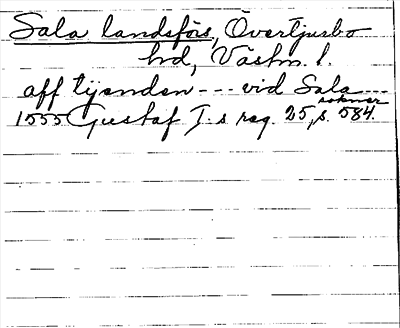 Sala landsförs, Övertjurbo
hd, Västm. l.
aff tijenden --- vid Sala ---
soknær
1555 Gustaf I.s reg. 25, s. 584.